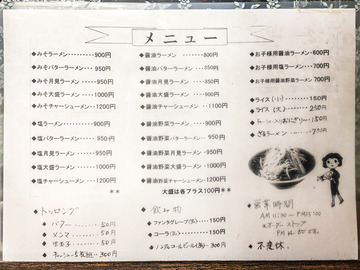 メニュー
◆みそラーメン・・・・・・900円
◆みそバターラーメン・・・・・950円
◆みそ月見ラーメン・・・・950円
◆みそ大盛ラーメン・・・・1000円
◆みそチャーシューメン・・・・1200円
◆塩ラーメン・・・・・・・900円
◆塩バターラーメン・・・・・950円
◆塩月見ラーメン・・・・・950円
◆塩大盛ラーメン・・・・・1000円
◆塩チャーシューメン・・・・・1200円
◆醤油ラーメン・・・・・・800円
◆醤油バターラーメン・・・・850円
◆醤油月見ラーメン・・・・850円
◆醤油大盛ラーメン・・・・900円
◆醤油チャーシューメン・・・・1100円
◆醤油野菜ラーメン・・・・900円
◆醤油野菜バターラーメン・・950円
◆醤油野菜月見ラーメン・・950円
◆醤油野菜大盛ラーメン・・1000円
◆醤油野菜チャーシューメン・・1200円
**大盛は各プラス100円**
◆お子様用醤油ラーメン・・600円
◆お子様用塩ラーメン・・・700円
◆お子様用醤油野菜ラーメン 700円
◆ライス(小)・・・・150円
◆ライス(大)・・・・250円
おにぎり・・・150円
◆ざるラーメン・・・
◆トッピング
バター・・・・50円
メンマ・・・・50円
50円
300円
◆飲み物
ファンタグレープ(缶)・・150円
コーラ(缶)・・・150円
ノンアルコールビール(缶)・・300円
◆営業時間
AM 11:30 ~
オーダーストップ
◆不定休。